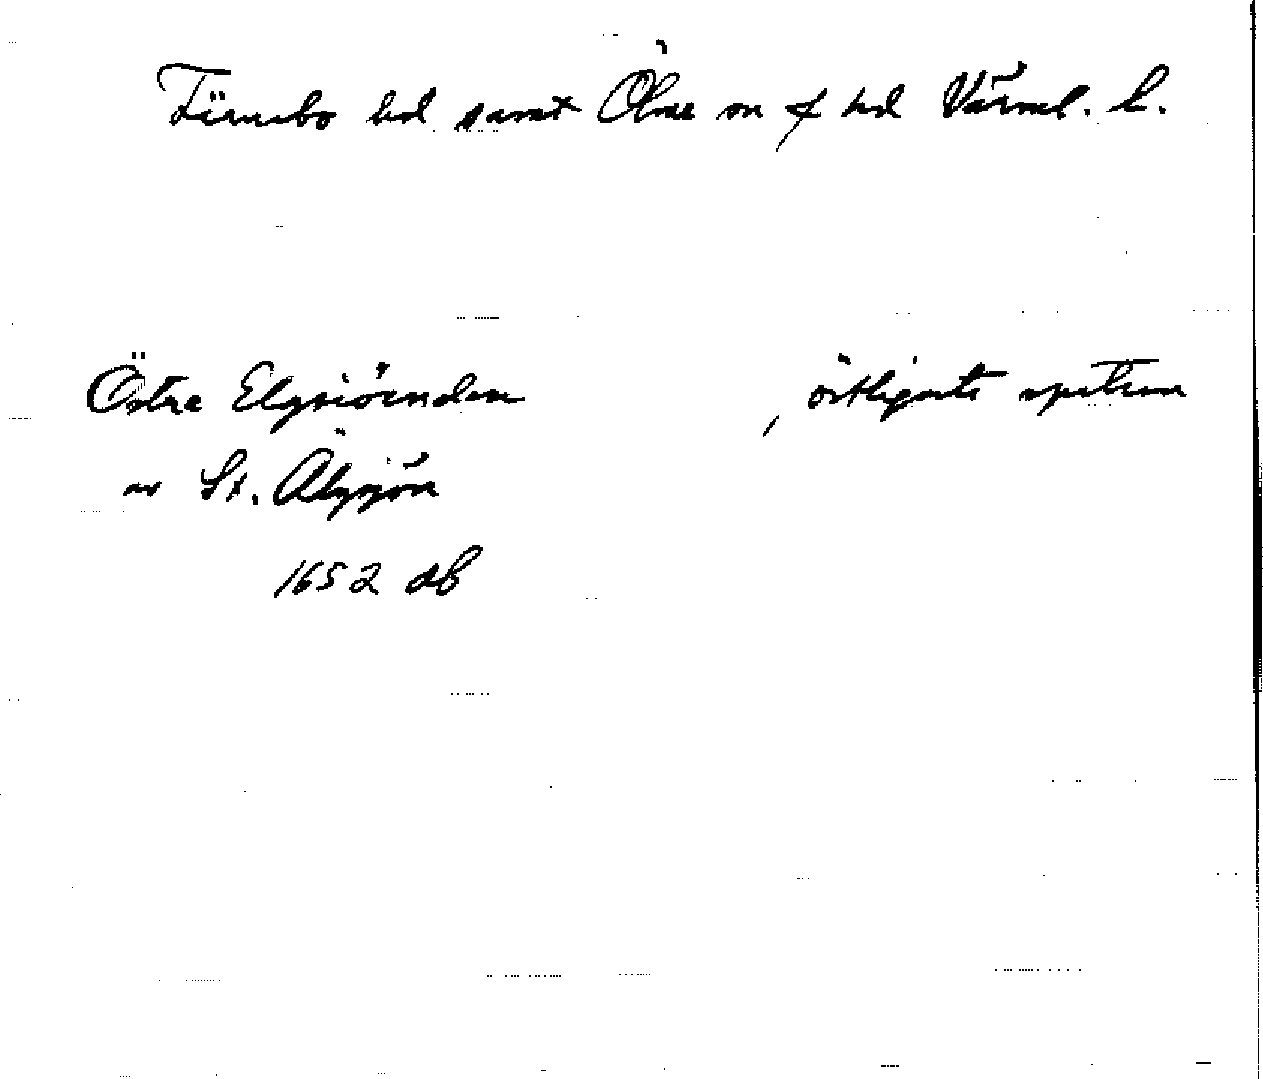 Färnebo hd samt Ölme m f hd Värml. l.
Östre Elgsiöenden , östligaste spetsen
av St. Älgsjön
1652 db